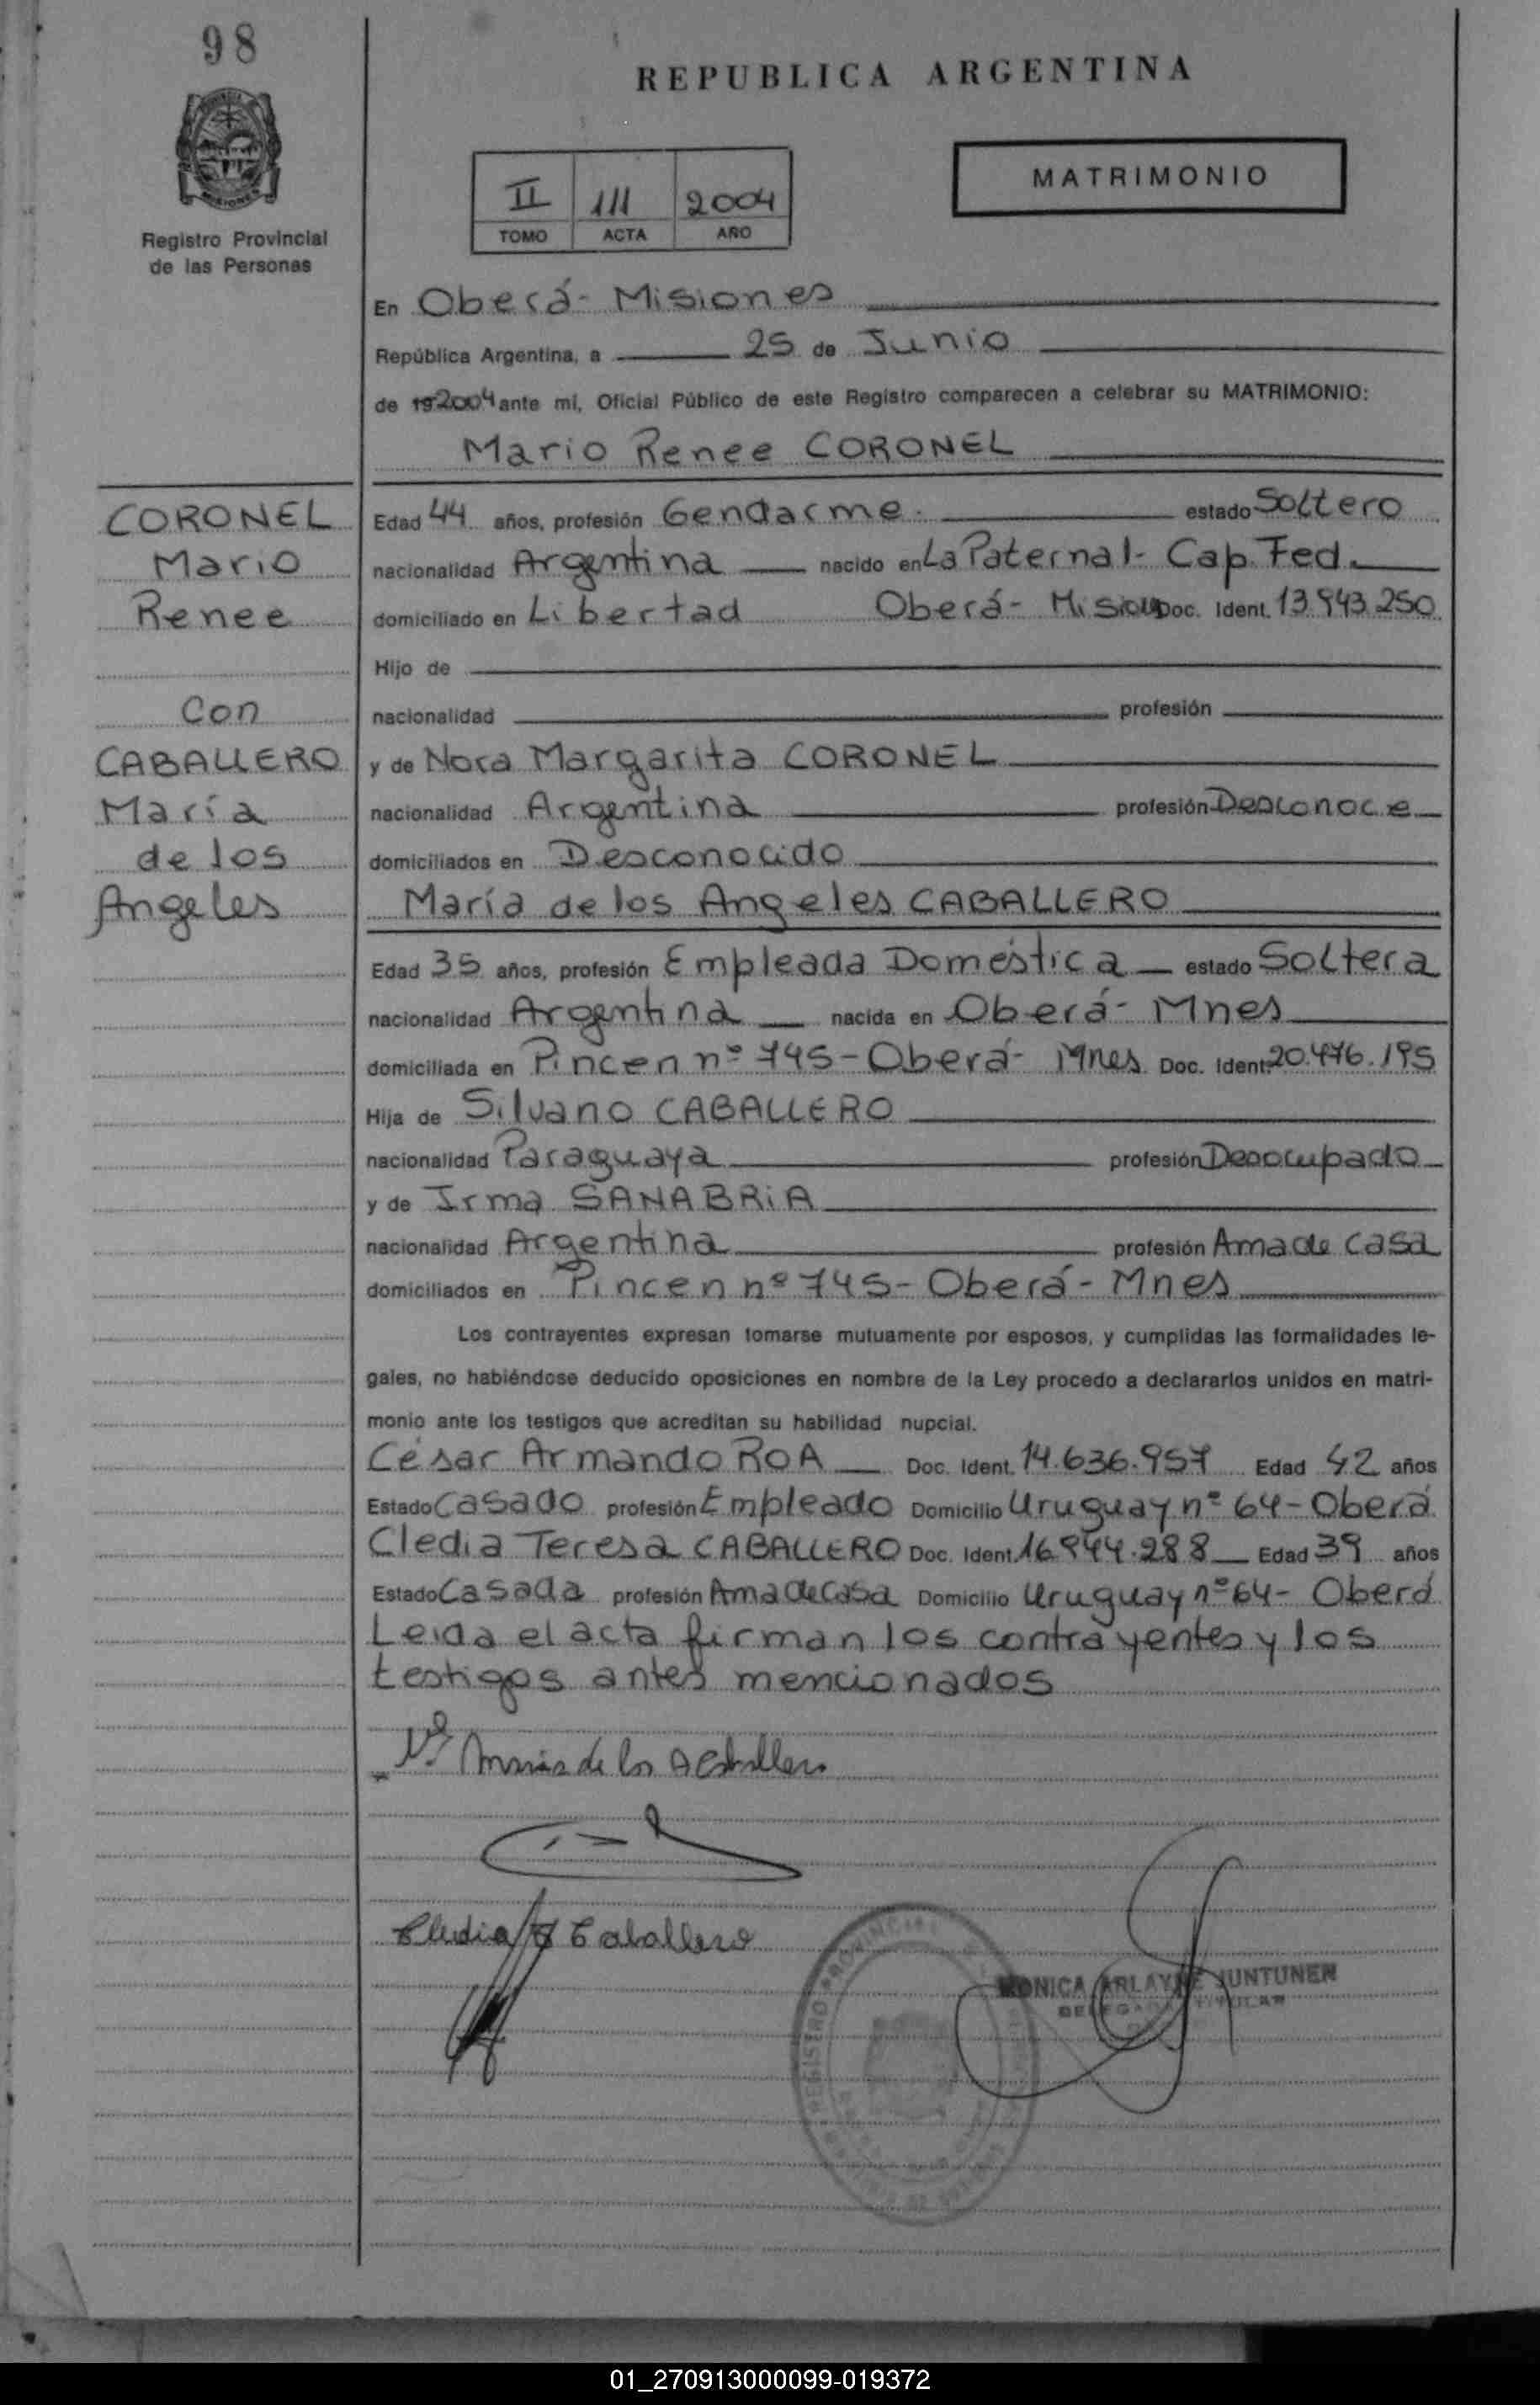 98
REPUBLICA ARGENTINA
MATRIMONIO
II 111 2004
TOMO ACTA AÑO
MISIONES
Registro Provincial
de las Personas
En Oberá - Misiones
República Argentina, a 25 de Junio
de 19 2004 ante mí, Oficial Público de este Registro comparecen a celebrar su MATRIMONIO:
Mario Renee CORONEL
CORONEL
Mario
Renee
Con
CABALLERO
María
de los
Angeles
Edad 44 años, profesión Gendarme. estado Soltero
nacionalidad Argentina nacido en La Paternal - Cap. Fed.
domiciliado en Libertad Oberá - Doc. Ident. 13.943.250
Hijo de
nacionalidad profesión
y de Nora Margarita CORONEL
nacionalidad Argentina profesión Desconoce
domiciliados en Desconocido
María de los Angeles CABALLERO
Edad 35 años, profesión Empleada Doméstica estado Soltera
nacionalidad Argentina nacida en Oberá - Mnes
domiciliada en Pincen nº 745 - Oberá - Mnes Doc. Ident. 20.476.195
Hija de Silvano CABALLERO
nacionalidad Paraguaya profesión Desocupado
y de Irma SANABRIA
nacionalidad Argentina profesión Ama de casa
domiciliados en Pincen nº 745 - Oberá - Mnes
Los contrayentes expresan tomarse mutuamente por esposos, y cumplidas las formalidades le-
gales, no habiéndose deducido oposiciones en nombre de la Ley procedo a declararlos unidos en matri-
monio ante los testigos que acreditan su habilidad nupcial.
César Armando ROA Doc. Ident. 14.636.957 Edad 42 años
Estado Casado profesión Empleado Domicilio Uruguay nº 64 - Oberá
Cledia Teresa CABALLERO Doc. Ident. 16.944.288 Edad 39 años
Estado Casada profesión Ama de Casa Domicilio Uruguay nº 64 - Oberá
Leida el acta firman los contrayentes y los
testigos antes mencionados
Maria de los A Caballero
Cledia T Caballero
REGISTRO PROVINCIAL
MONICA ARLAYNE JUNTUNEN
DELEGADA TITULAR
01_270913000099-019372